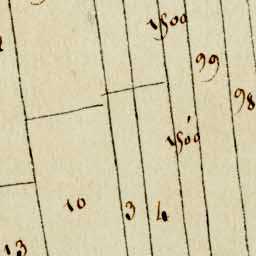 1500
99
98
1500
10 3 4
13